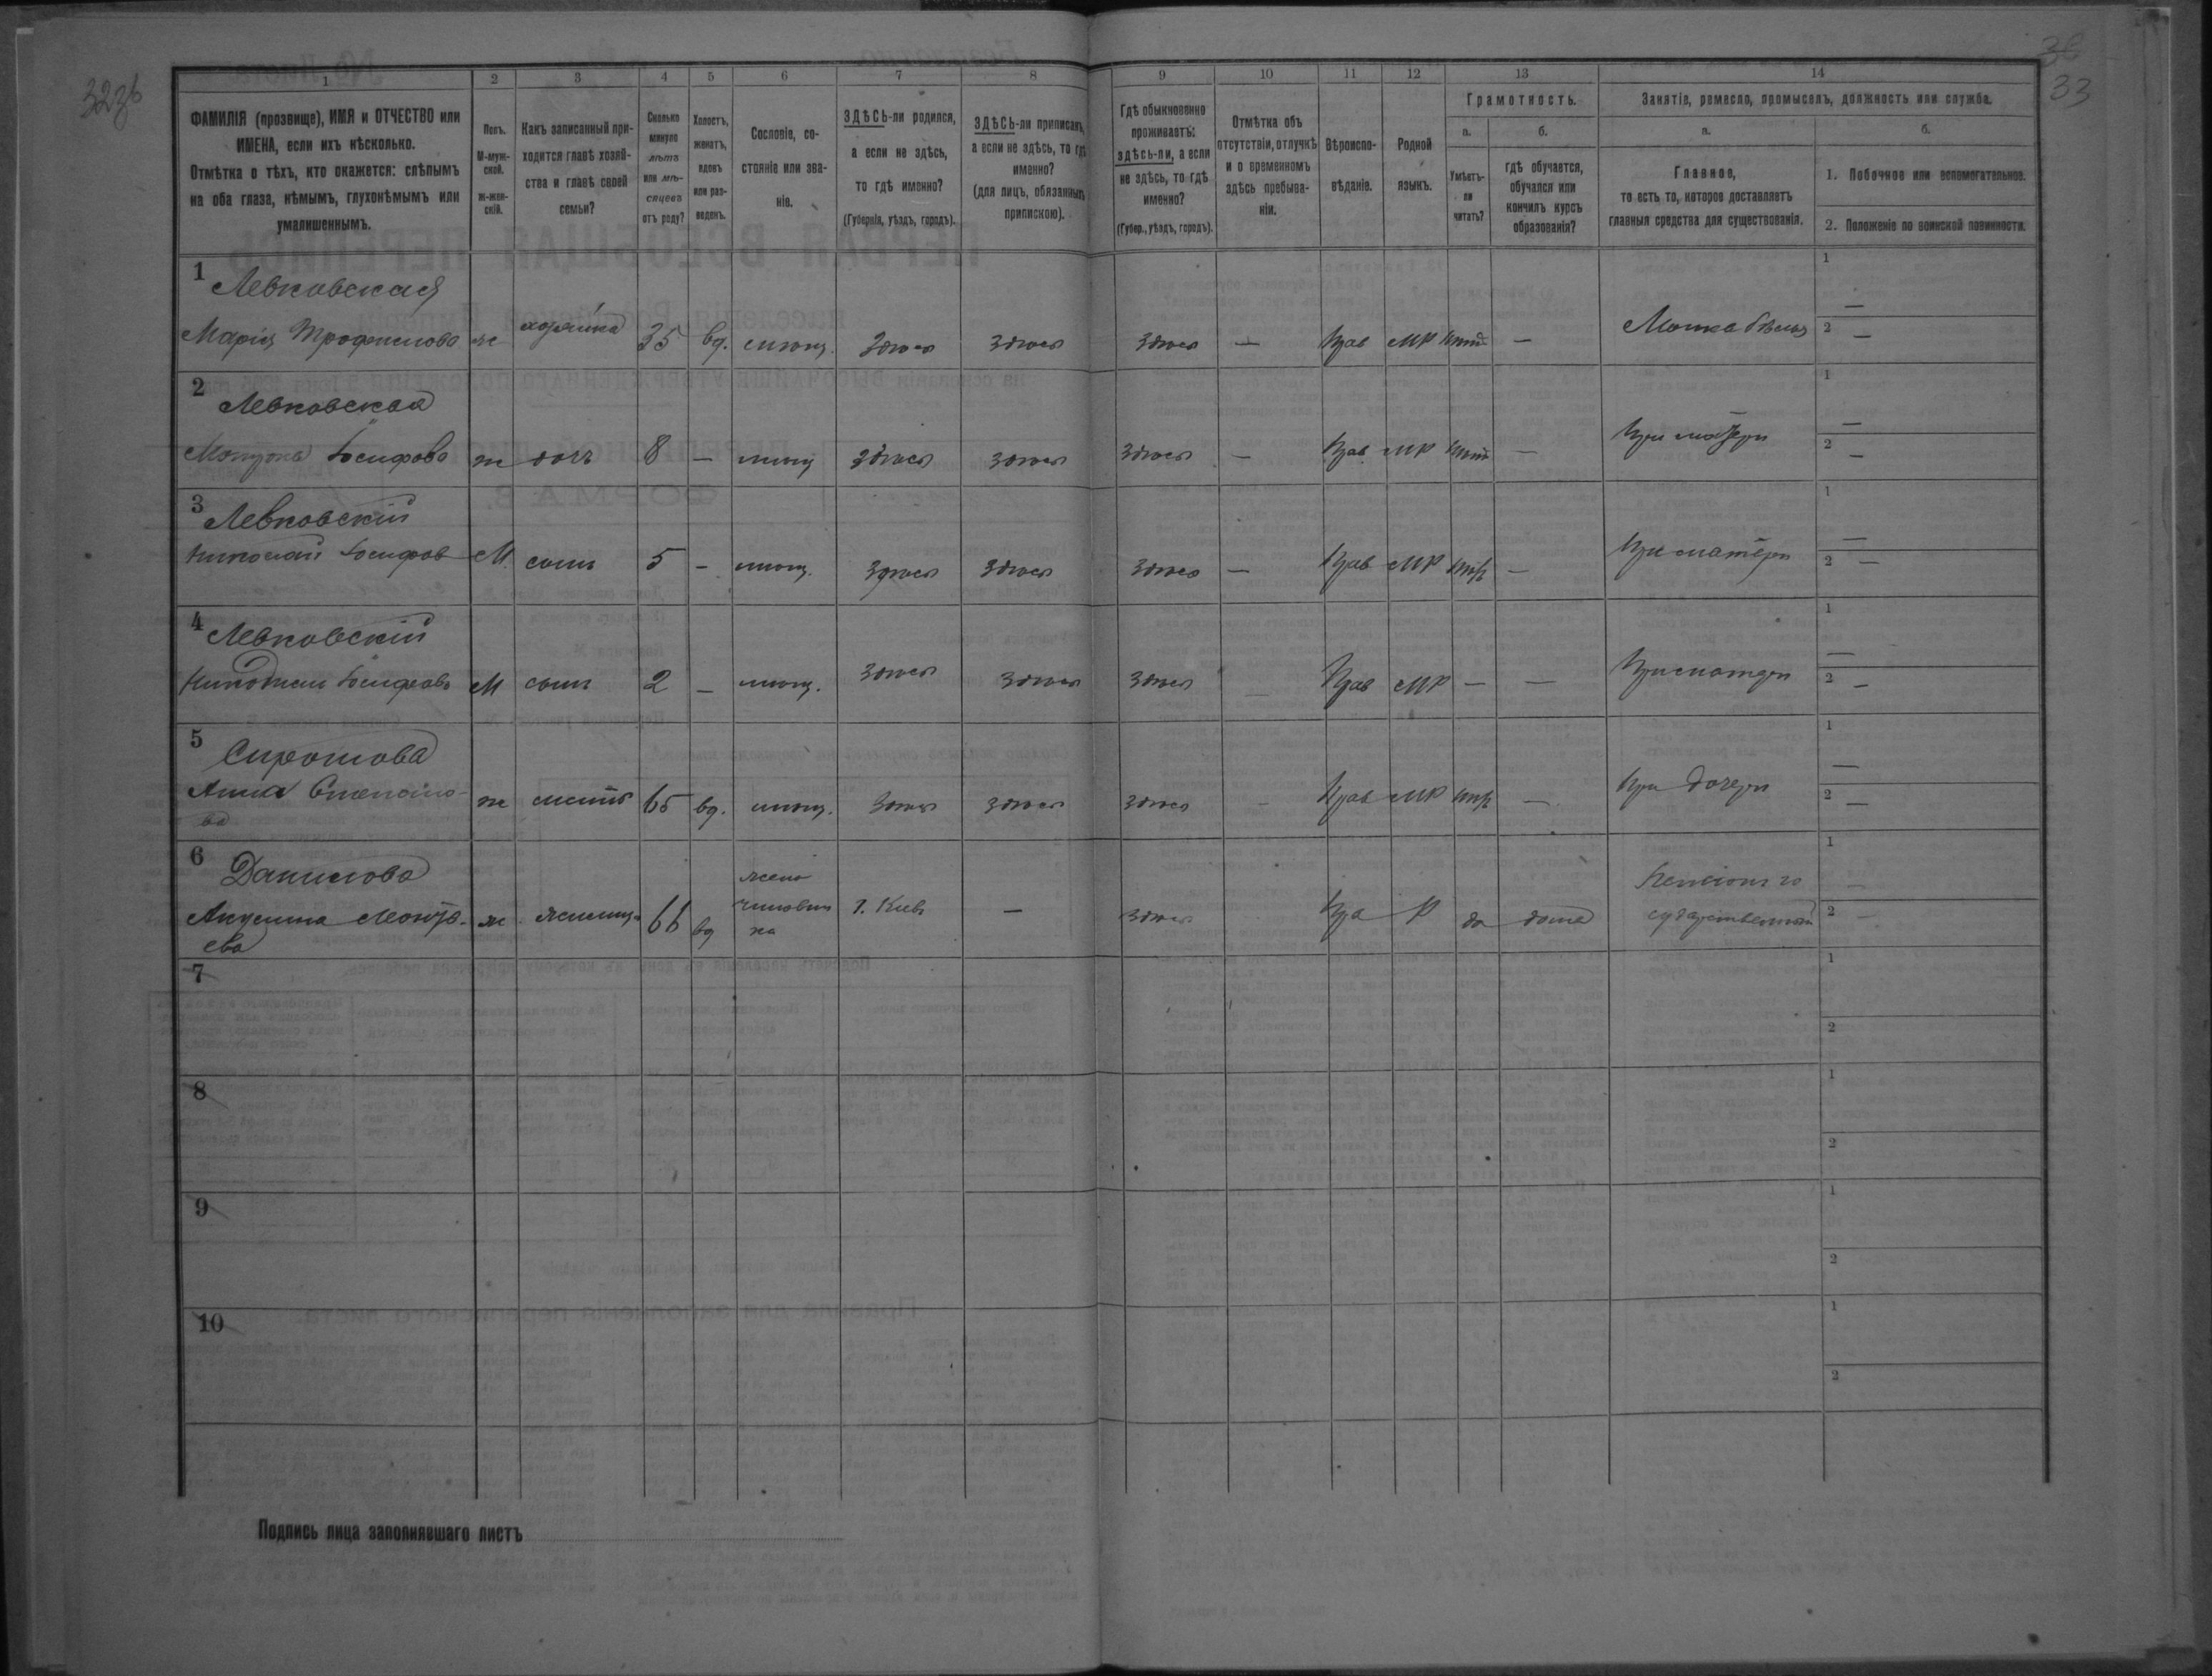 323б
36
33
1 2 3 4 5 6 7 8 9 10 11 12 13 14
ФАМИЛІЯ (прозвище), ИМЯ и ОТЧЕСТВО или
ИМЕНА, если ихъ нѣсколько.
Отмѣтка о тѣхъ, кто окажется: слѣпымъ
на оба глаза, нѣмымъ, глухонѣмымъ или
умалишеннымъ.
Полъ.
М-муж-
ской.
ж-жен-
скій.
Какъ записанный при-
ходится главѣ хозяй-
ства и главѣ своей
семьи?
Сколько
минуло
лѣтъ
или мѣ-
сяцевъ
отъ роду?
Холостъ,
женатъ,
вдовъ
или раз-
веденъ.
Сословіе, со-
стояніе или зва-
ніе.
ЗДѢСЬ-ли родился,
а если не здѣсь,
то гдѣ именно?
(Губернія, уѣздъ, городъ).
ЗДѢСЬ-ли приписанъ,
а если не здѣсь, то гдѣ
именно?
(для лицъ, обязанныхъ
припискою).
Гдѣ обыкновенно
проживаетъ:
здѣсь-ли, а если
не здѣсь, то гдѣ
именно?
(Губер., уѣздъ, городъ).
Отмѣтка объ
отсутствіи, отлучкѣ
и о временномъ
здѣсь пребыва-
ніи.
Вѣроиспо-
вѣданіе.
Родной
языкъ.
Грамотность.
а.
Умѣетъ-
ли
читать?
б.
гдѣ обучается,
обучался или
кончилъ курсъ
образованія?
Занятіе, ремесло, промыселъ, должность или служба.
а.
Главное,
то есть то, которое доставляетъ
главныя средства для существованія.
б.
1. Побочное или вспомогательное.
2. Положеніе по воинской повинности.
1 Левковская
Марія Трофимова ж хозяйка 35 вд. мѣщ. Здѣсь здѣсь здѣсь — Прав МР нѣтъ — 1 — 2 —
2 Левковская
Іосифова ж дочь 8 — мѣщ здѣсь здѣсь здѣсь — Прав МР нѣтъ — При матери 1 — 2 —
3 Левковскій
Николай Іосифов М. сынъ 5 — мѣщ. здѣсь здѣсь здѣсь — Прав МР нѣтъ — При матери 1 — 2 —
4 Левковскій
Никодим Іосифовъ М сынъ 2 — мѣщ. здѣсь здѣсь здѣсь — Прав МР — — При матери 1 — 2 —
5 Сиротова
Анна Степано-
ва ж мать 65 вд. мѣщ. здѣсь здѣсь здѣсь — Прав МР нѣтъ — При дочери 1 — 2 —
6 Данилова
Акулина
ева ж жилица 66 вд жена
чиновни
ка г. Кіев — здѣсь Пра Р да дома Пенсіонъ го
сударственный 1 — 2 —
7 1 2
8 1 2
9 1 2
10 1 2
Подпись лица заполнявшаго листъ